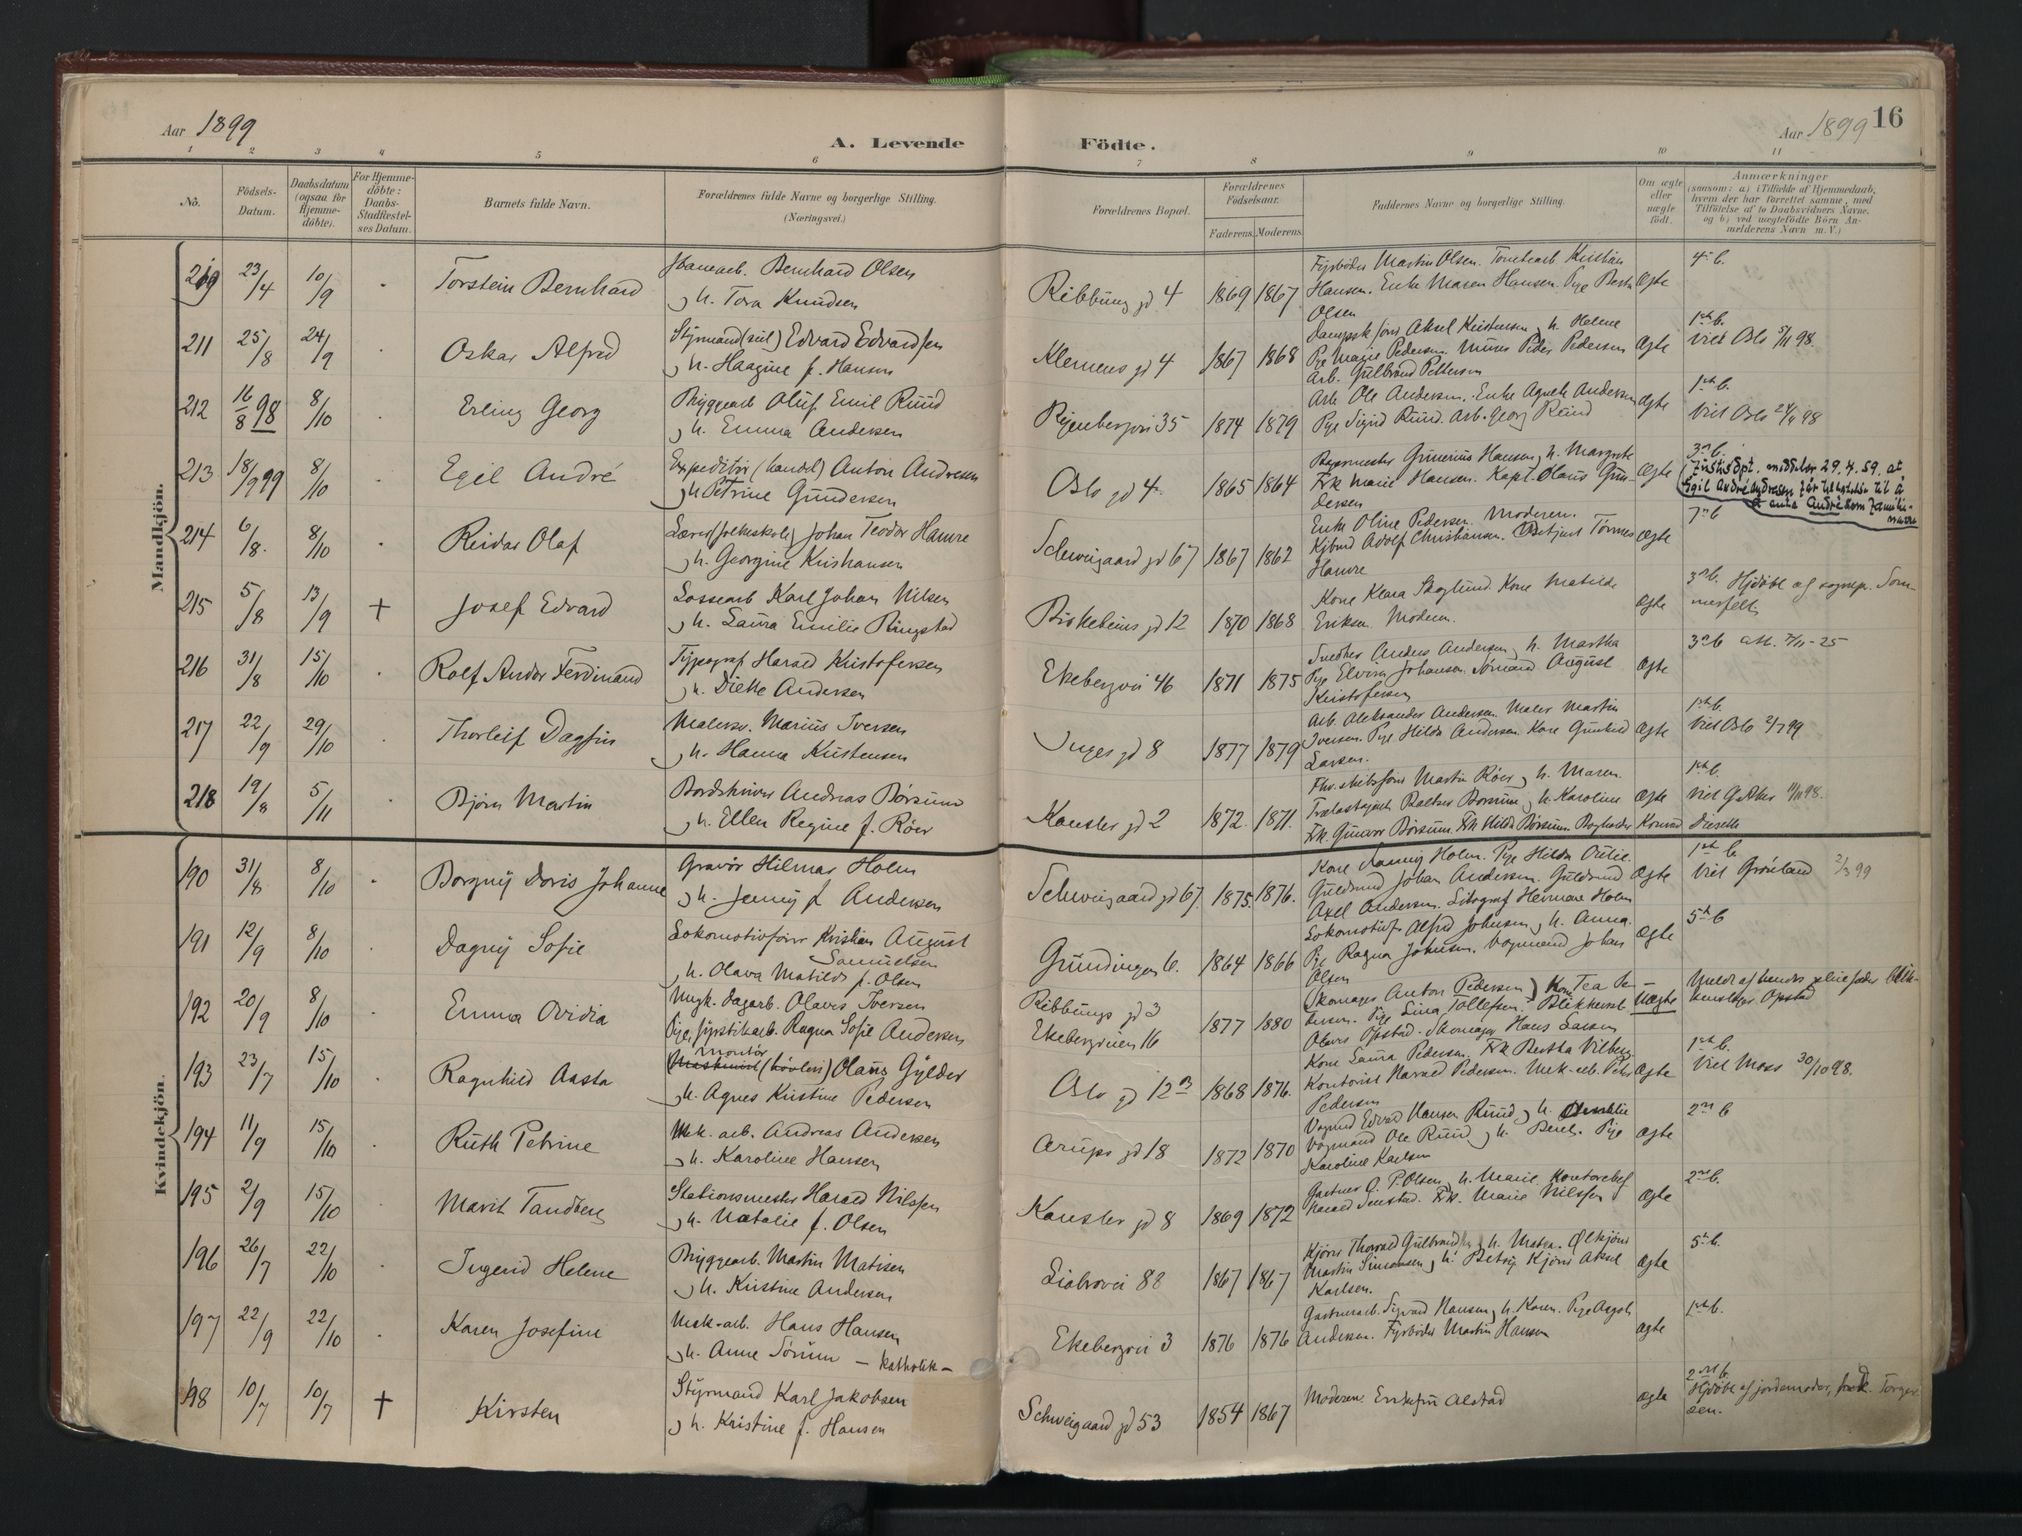 Aar 1899
A. Levende
Födte.
Aar 1899
16
1 2 3 4 5 6 7 8 9 10 11
No.
Födsels-
Datum.
Daabsdatum
(ogsaa for
Hjemme-
döbte).
For Hjemme-
döbte:
Daabs-
Stadfæstel-
ses Datum.
Barnets fulde Navn.
Forældrenes fulde Navne og borgerlige Stilling.
(Næringsvei.)
Forældrenes Bopæl.
Forældrenes
Födselsaar.
Faderens. Moderens.
Faddernes Navne og borgerlige Stilling.
Om ægte
eller
uægte
födt.
Anmærkninger
(saasom: a) i Tilfælde af Hjemmedaab,
hvem der har forrettet samme, med
Tilföielse af to Daabsvidners Navne.
og b) ved uægtefödte Börn An-
melderens Navn m. V.)
Mandkjön.
23/4 10/9 Torstein Bernhard
Bernhard Olsen
h. Tora Knudsen
Ribbung gd 4 1869 1867
Fyrbøder Martin Olsen. Kristian
Hansen. Enke Maren Hansen. Pige
Olsen
Ægte
4 b.
211 25/8 24/9 Oskar Alfred
Styrmand (seil) Edvard Edvardsen
h. Haagine f. Hansen
Klemens gd 4 1867 1868
Aksel Kristensen h. Helene
Pige Marie Pedersen. Murer Peder Pedersen
Arb. Gulbrand Pettersen
Ægte
1ste b.
viet Oslo 5/11 98.
212 16/8 98 8/10 Erling Georg
Bryggearb Oluf Emil Ruud
h. Emma Andersen
Ryenbergvei 35 1874 1879
Arb. Ole Andersen. Enke Agnete Andersen
Pige Sigrid Ruud. Arb. Georg Ruud
Ægte
1ste b.
Viet Oslo
213 18/9 99 8/10 Egil André
Expeditør (handel) Anton Andresen
h. Petrine Gundersen
Oslo gd 4 1865 1864
Grunerius Hansen h. Margrete
Frk Marie Hansen. Kapt. Olaus Gun-
dersen
Ægte
3die b.
Justisdpt. meddeler 29.4.59. at
Egil André Andresen får til å
anta André som familie-
navn
214 6/8. 8/10 Reidar Olaf
Lærer (folkeskole) Johan Teodor Hamre
h. Georgine Kristiansen
Schweigaard gd 67 1867 1862
Enke Oline Pedersen. Moderen.
Adolf Christiansen. Betjent Tørnes
Hamre
Ægte
7de b
215 5/8 13/9 + Josef Edvard
Lossearb Karl Johan Nilsen
h. Laura Emilie Ringstad
Birkebeins gd 12 1870 1868
Kone Klara Skoglund. Kone Matilde
Eriksen. Moderen.
Ægte
3die b. Hjdöbt af sognepr. Som-
merfelt
216 31/8 15/10 Rolf Andor Ferdinand
Typograf Harald Kristofersen
h. Dikke Andersen
Ekebergvei 46 1871 1875
Snedker Anders Andersen h. Martha
Pige Elvira Johansen. Sømand August
Kristofersen
Ægte
3die b att. 7/11-25
217 22/9 29/10 Thorleif Dagfin
Malersv. Marius Iversen
h. Hanna Kristensen
Inges gd 8 1877 1879
Arb. Aleksander Andersen. Maler Martin
Iversen. Pige Hilda Andersen. Kone Gunhild
Larsen.
Ægte
1ste b.
Viet Oslo 2/7 99
218 19/8 5/11 Björn Martin
Bordskriver Andreas Börsum
h. Ellen Regine f. Röer
Kansler gd 2 1872. 1871.
Martin Röer h. Maren
Baltzer Börsum h. Karoline
Frk. Gunvor Börsum. Frk Hilda Börsum. Bogholder Konrad
Ægte
1ste b.
Viet G. Aker 11/11 98.
Kvindekjön.
190 31/8 8/10 Borgny Doris Johanne
Gravör Hilmar Holm
h. Jenny f. Andersen
Schweigaard gd 67. 1875. 1876.
Kone Fanny Holm. Pige Hilda
Guldsmed Johan Andersen. Guldsmed
Axel Andersen. Litograf Herman Holm
Ægte
1ste b.
Viet Grönland 2/3 99
191 12/9 8/10 Dagny Sofie
Lokomotivförer Kristian August
Samuelsen
h. Olava Matilde f. Olsen
Grundingen 6. 1864 1866
Lokomotivf Alfred Johnsen h. Anna
Pige Ragna Johnsen. Vognmand Johan
Olsen
Ægte
5te b
192 20/9 8/10 Emma Ovidia
Mek. dagarb. Olaves Iversen
Pige, fyrstikarb. Ragna Sofie Andersen
Ribbungs gd 3
Ekebergveien 16
1877 1880
Skomager Anton Pedersen Kone Tea Pe-
dersen. Pige Lina Tollefsen. Blikkensl.
Olaves Opstad. Skomager Hans Larsen
Uægte
Meldt af hendes pleiefader Blik-
kenslager Opstad
193 23/7 15/10 Ragnhild Aasta
montör
Maskinist (hövleri) Olaus Gylder
h. Agnes Kristine Pedersen
Oslo gd 12 B 1868 1876.
Kone Laura Pedersen. Frk Bertha Vilberg
Kontorist Harald Pedersen. Mek-arb. Peter
Pedersen
Ægte
1ste b.
Viet Moss 30/10 98.
194 11/9 15/10 Ruth Petrine
Mek. arb. Andreas Andersen
h. Karoline Hansen
Arups gd 18 1872 1870
Vognmd Edvard Hansen Ruud h.
Vognmand Ole Ruud h. Pige
Karoline Karlsen
Ægte
2det b
195 2/9 15/10 Marit Tandberg
Stationsmester Harald Nilssen
h. Natalie f. Olsen
Kansler gd 8 1869 1872
Gartner O. P. Olsen h. Marie. Kontorchef
Harald Frk. Marie Nilssen
Ægte
2det b.
196 26/7 22/10 Ingerid Helene
Bryggearb. Martin Matisen
h. Kristine Andersen
Liabrovei 88 1867 1867
Kjörer Thorvald Gulbrandsen h. Ölkjörer
Martin Simonsen h. Betsy Kjörer Aksel
Karlsen.
Ægte
5te b.
197 22/9 22/10 Karen Josefine
Mek-arb. Hans Hansen
h. Anne Sörum - katholik -
Ekebergvei 3 1876 1876
Gartnerarb. Sigvard Hansen h. Karen. Pige Aagot
Andersen. Fyrböder Martin Hansen
Ægte
1ste b.
198 10/7 10/7 + Kirsten
Styrmand Karl Jakobsen
h. Kristine f. Hansen
Schweigaard gd 53 1854 1867
Moderen. Alstad
Ægte
2det b.
Hjdöbt af jordemoder, fr. Torger
sen.